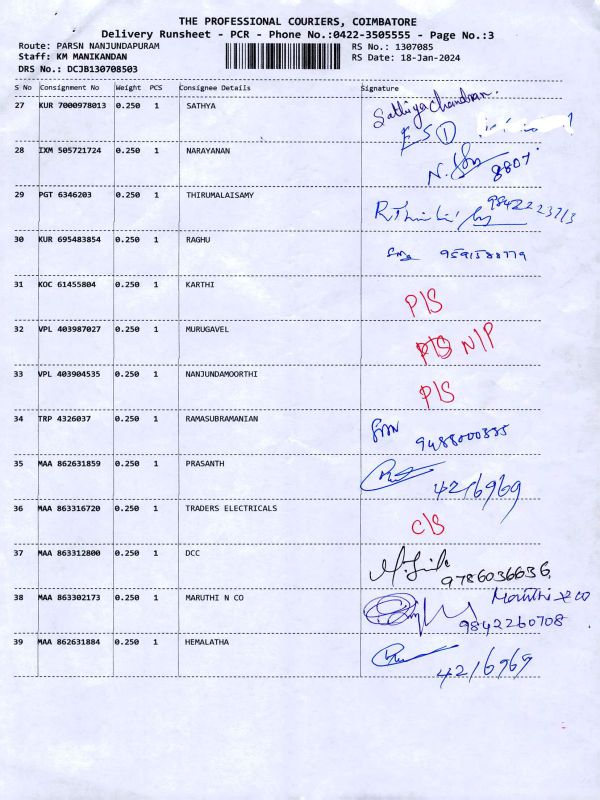 THE PROFESSIONAL COURIERS, COIMBATORE
Delivery Runsheet - PCR - Phone No.:0422-3505555 - Page No.:3
Route: PARSN NANJUNDAPURAM
RS No.: 1307085
Staff: KM MANIKANDAN
RS Date: 18-Jan-2024
DRS No.: DCJB130708503
S No Consignment No Weight PCS Consignee Details Signature
27 KUR 7000978013 0.250 1 SATHYA Sathiya Chandran.
E S 1
28 IXM 505721724 0.250 1 NARAYANAN N. 8807
29 PGT 6346203 0.250 1 THIRUMALAISAMY 9842223713
30 KUR 695483854 0.250 1 RAGHU
31 KOC 61455804 0.250 1 KARTHI P/S
32 VPL 403987027 0.250 1 MURUGAVEL N/P
33 VPL 403904535 0.250 1 NANJUNDAMOORTHI P/S
34 TRP 4326037 0.250 1 RAMASUBRAMANIAN 9488000335
35 MAA 862631859 0.250 1 PRASANTH 42/6969
36 MAA 863316720 0.250 1 TRADERS ELECTRICALS C/S
37 MAA 863312800 0.250 1 DCC 9786036636
38 MAA 863302173 0.250 1 MARUTHI N CO Maruthi & co
9842260708
39 MAA 862631884 0.250 1 HEMALATHA 42/6969